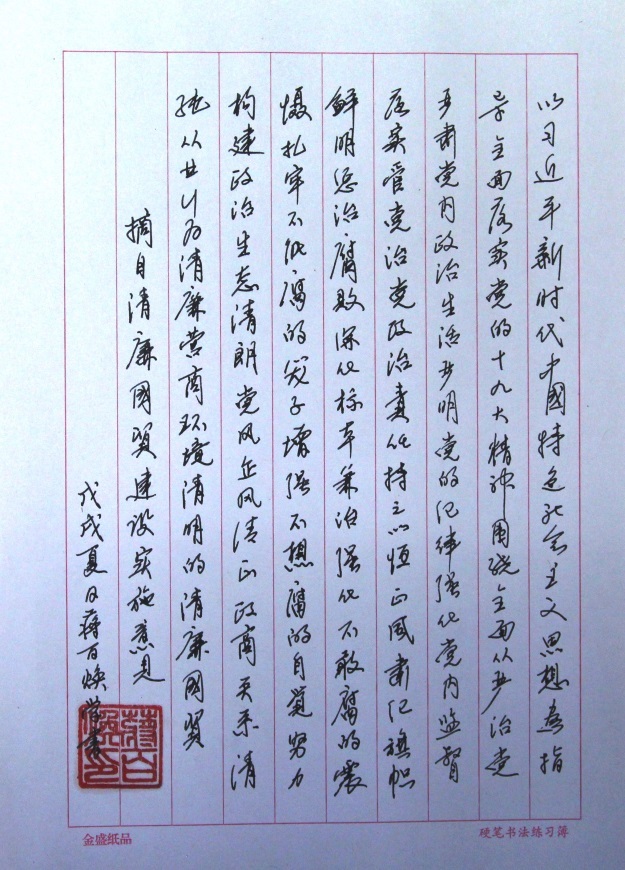 以习近平新时代中國特色社会主义思想为指
导全面落实党的十九大精神围绕全面从严治党
严肃党内政治生活严明党的纪律强化党内监督
落实管党治党政治责任持之以恒正风肃纪旗帜
鲜明惩治腐败深化标本兼治强化不敢腐的震
慑扎牢不能腐的笼子增强不想腐的自觉努力
构建政治生态清朗党风企风清正政商关系清
纯从业行为清廉营商环境清明的清廉國贸
摘自清廉國贸建设实施意见
戊戌夏日蒋百焕学書
金盛纸品
硬笔书法练习簿